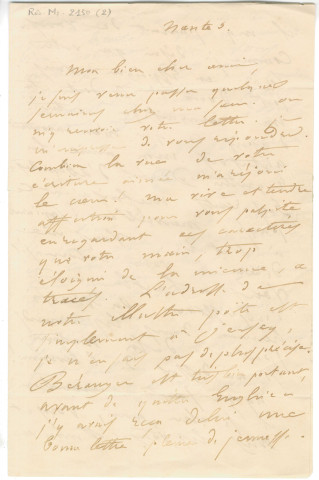 Nantes.
Mon bien cher ami,
je suis venu passer quelques
semaines chez ma sœur. on
m'y renvoie votre lettre, je
m'empresse de vous répondre.
Combien la vue de votre
écriture aimée m'a réjoui
le cœur! ma vive et tendre
affection pour vous palpite
en regardant ces caractères
que votre main, trop
éloignée de la mienne, a
tracés. L'adresse de
notre illustre poëte est
simplement à Jersey,
je n'en sais pas de plus précise.
Béranger est très bien portant,
avant de quitter
j'y avais reçu de lui une
bonne lettre pleine de jeunesse.